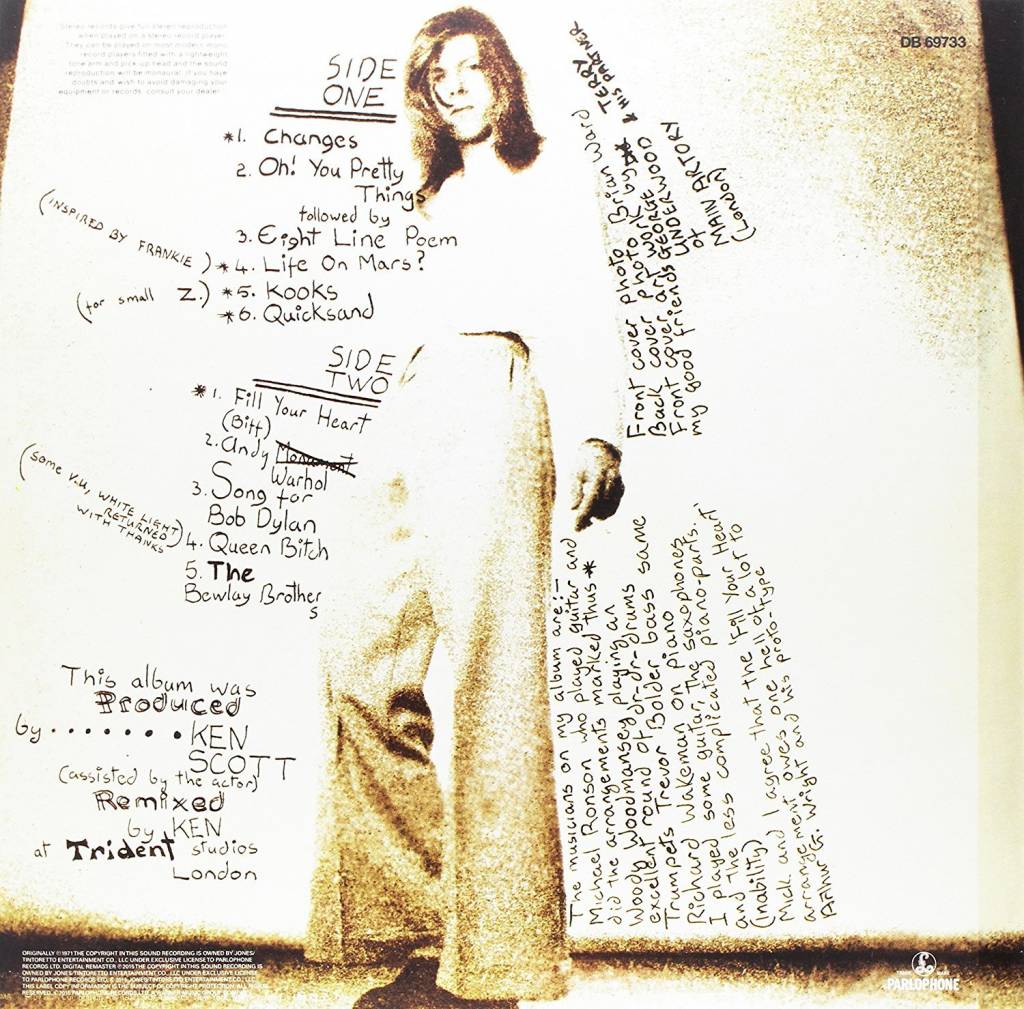 Stereo records give full stereo reproduction
when played on a stereo record player.
They can be played on most modern mono
record players fitted with a lightweight
tone arm and pick-up head and the sound
reproduction will be monaural. If you have
doubts and wish to avoid damaging your
equipment or records, consult your dealer.
DB 69733
SIDE
ONE
*1. Changes
2. Oh! You Pretty
Things
followed by
3. Eight Line Poem
(INSPIRED BY FRANKIE) *4. Life On Mars?
(for small Z.) *5. Kooks
*6. Quicksand
SIDE
TWO
*1. Fill Your Heart
(Biff)
2. Andy
Warhol
3. Song for
Bob Dylan
(Some V.U, WHITE LIGHT
RETURNED
WITH THANKS)
4. Queen Bitch
5. The
Bewlay Brother
s
This album was
Produced
by ........ KEN
SCOTT
(assisted by the actor)
Remixed
by KEN
at Trident studios
London
Front cover photo Brian Ward
Back cover photo by
Front cover art work by TERRY
my good friends GEORGE UNDERWOOD & HIS PARTNER
of MAIN ARTORY
(London)
The musicians on my album are:-
Michael Ronson who played guitar and
did the arrangements marked thus *
Woody Woodmansey playing an
excellent round of dr-dr-drums
Trumpets Trevor Bolder bass same
Richard Wakeman on piano
I played some guitar, the saxophones,
and the less complicated piano parts.
(inability)
Mick and I agree that the 'Fill Your Heart'
arrangement owes one hell of a lot to
Arthur G. Wright and his proto-type
ORIGINALLY ℗1971 THE COPYRIGHT IN THIS SOUND RECORDING IS OWNED BY JONES/
TINTORETTO ENTERTAINMENT CO., LLC UNDER EXCLUSIVE LICENSE TO PARLOPHONE
RECORDS LTD. DIGITAL REMASTER ℗2015 THE COPYRIGHT IN THIS SOUND RECORDING IS
OWNED BY JONES/TINTORETTO ENTERTAINMENT CO., LLC UNDER EXCLUSIVE LICENSE
TO PARLOPHONE RECORDS LTD.
THIS LABEL COPY INFORMATION IS THE SUBJECT OF COPYRIGHT PROTECTION. ALL RIGHTS
RESERVED.
PARLOPHONE